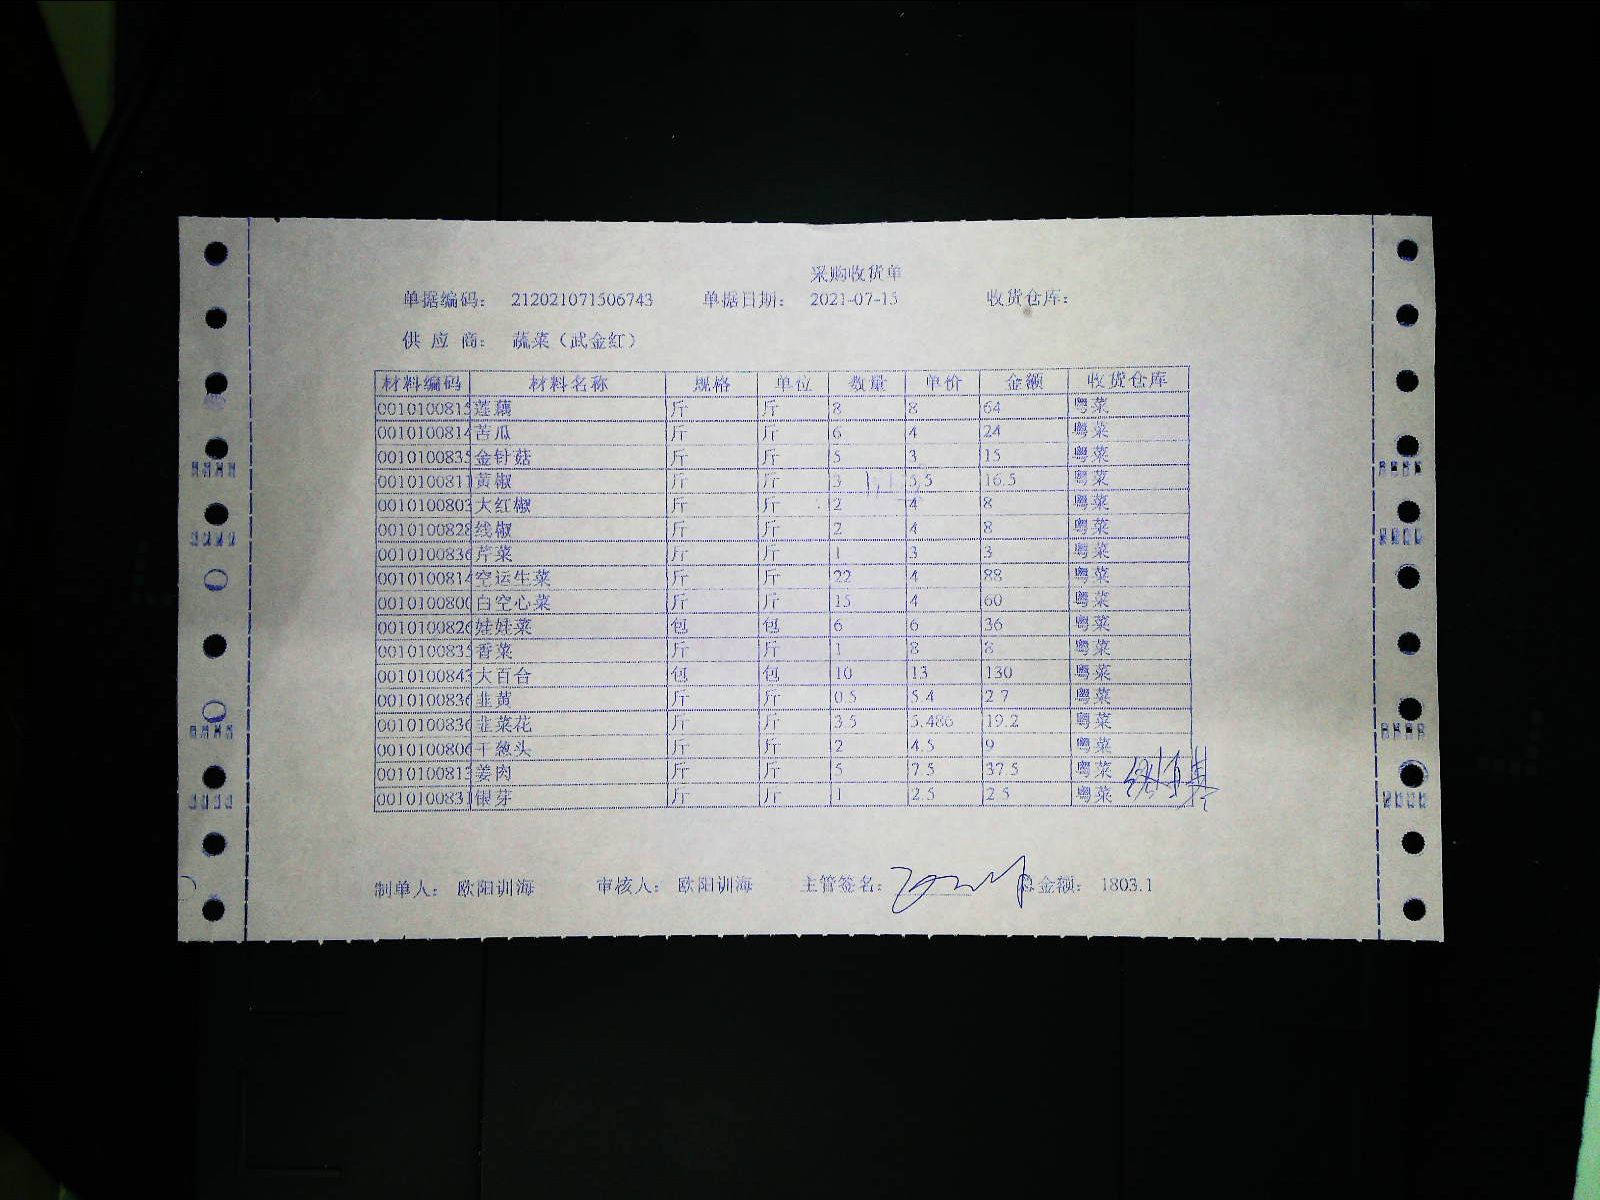 采购收货单
单据编码： 212021071506743 单据日期： 2021-07-15 收货仓库：
供 应 商： 蔬菜（武金红）
材料编码 材料名称 规格 单位 数量 单价 金额 收货仓库
0010100815 莲藕 斤 斤 8 8 64 粤菜
0010100814 苦瓜 斤 斤 6 4 24 粤菜
0010100835 金针菇 斤 斤 5 3 15 粤菜
0010100811 黄椒 斤 斤 3 5.5 16.5 粤菜
0010100803 大红椒 斤 斤 2 4 8 粤菜
0010100828 线椒 斤 斤 2 4 8 粤菜
0010100836 芹菜 斤 斤 1 3 3 粤菜
0010100814 空运生菜 斤 斤 22 4 88 粤菜
0010100800 白空心菜 斤 斤 15 4 60 粤菜
0010100826 娃娃菜 包 包 6 6 36 粤菜
0010100835 香菜 斤 斤 1 8 8 粤菜
0010100843 大百合 包 包 10 13 130 粤菜
0010100836 韭黄 斤 斤 0.5 5.4 2.7 粤菜
0010100836 韭菜花 斤 斤 3.5 5.486 19.2 粤菜
0010100806 干葱头 斤 斤 2 4.5 9 粤菜
0010100813 姜肉 斤 斤 5 7.5 37.5 粤菜
0010100831 银芽 斤 斤 1 2.5 2.5 粤菜
制单人： 欧阳训海 审核人： 欧阳训海 主管签名： 总金额： 1803.1